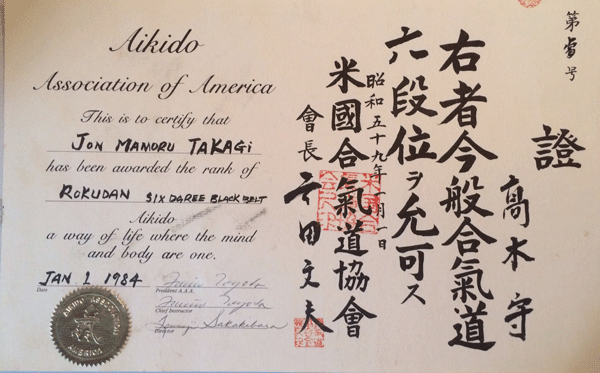 Aikido
Association of America
This is to certify that
JON MAMORU TAKAGI
has been awarded the rank of
ROKUDAN SIX DAREE BLACK BELT
Aikido
a way of life where the mind
and body are one.
JAN 1 1984
Date
Fumio Toyoda
President A.A.A.
Fumio Toyoda
Chief Instructor
Sakakibara
Director
AIKIDO ASSOCIATION
AMERICA
第 号
證
髙木守
右者今般合氣道
六段位ヲ允可ス
昭和五十九年一月一日
米國合氣道協會
會長 田文夫